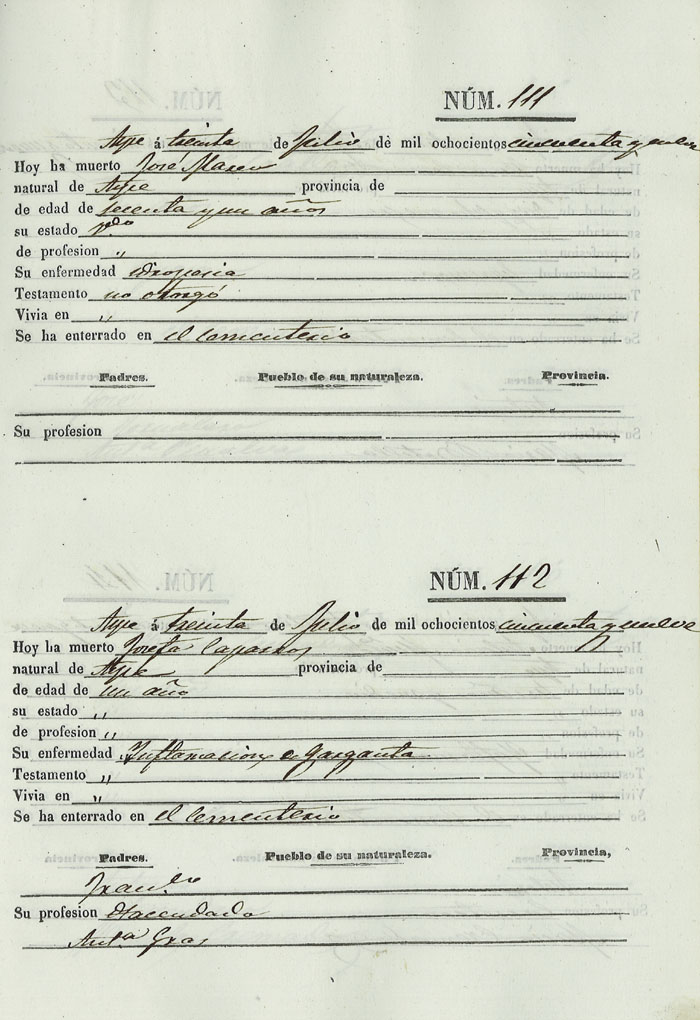 NÚM. 111
Aspe á treinta de Julio de mil ochocientos cincuenta y nueve
Hoy ha muerto José
natural de Aspe provincia de
de edad de sesenta y un años
su estado
de profesion "
Su enfermedad idropesia
Testamento no otorgó
Vivia en "
Se ha enterrado en el Cementerio
Padres. Pueblo de su naturaleza. Provincia.
Su profesion
NÚM. 112
Aspe á treinta de Julio de mil ochocientos cincuenta y nueve
Hoy ha muerto Josefa Caparros
natural de Aspe provincia de
de edad de un año
su estado "
de profesion "
Su enfermedad Inflamacion de garganta
Testamento "
Vivia en "
Se ha enterrado en el Cementerio
Padres. Pueblo de su naturaleza. Provincia,
Fran.co
Su profesion Hacendado
Ant.a Gras